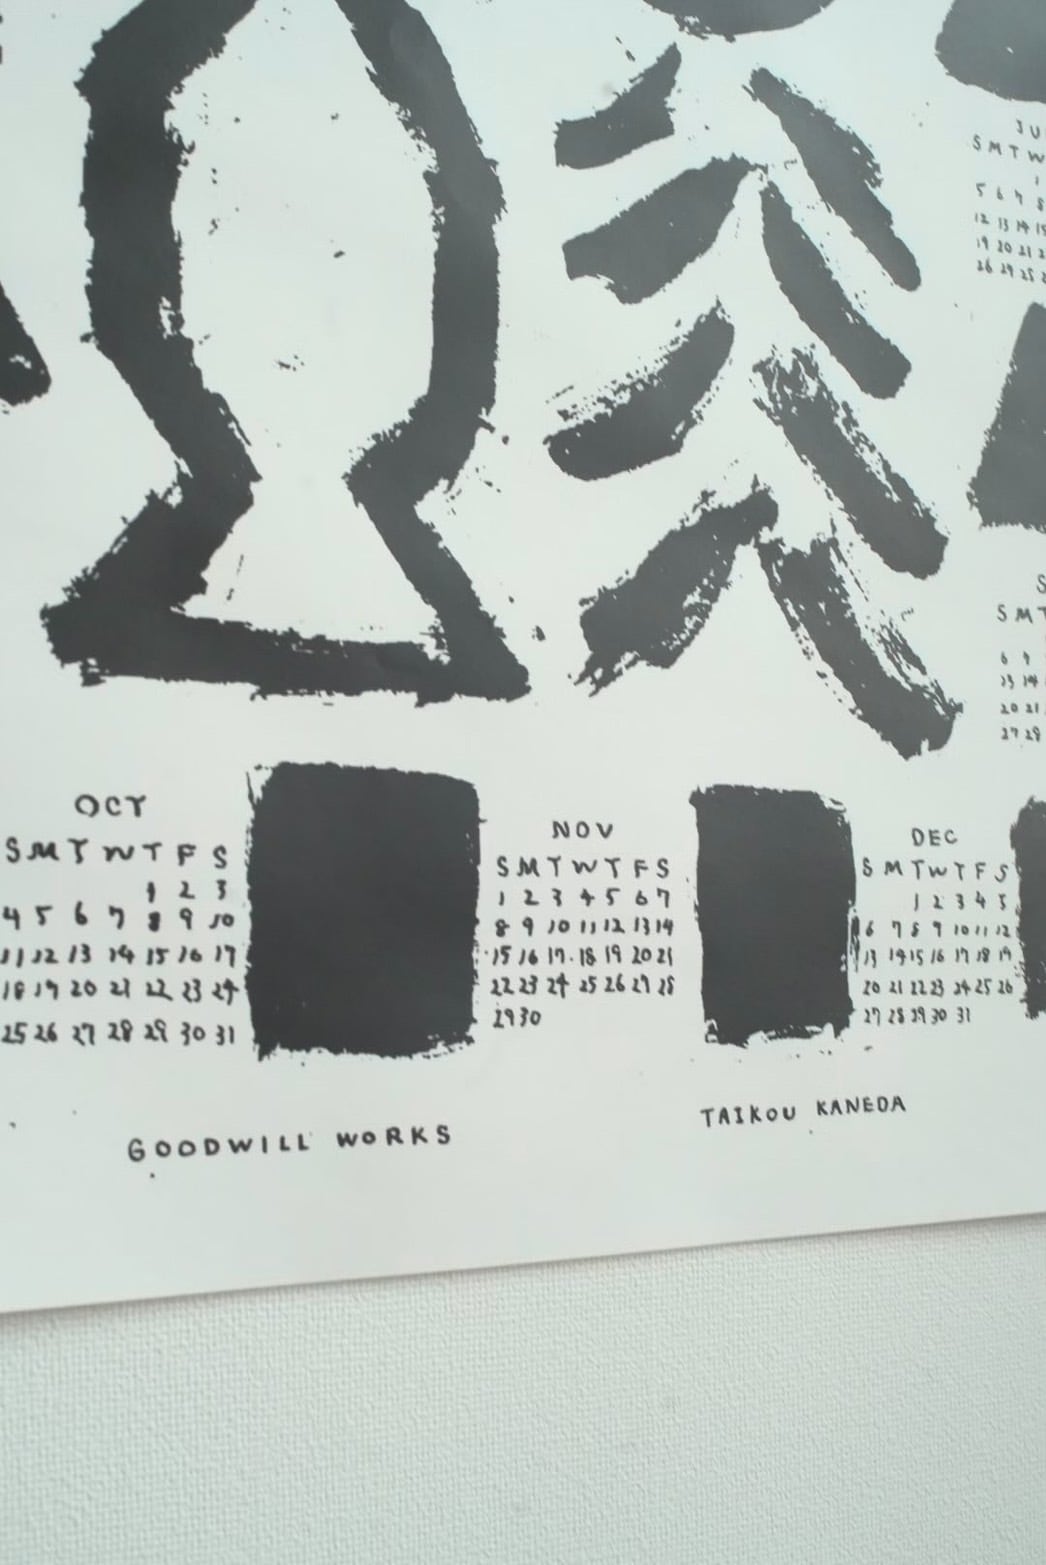 JU
S M T W
5 6 7 8
12 13 14 15
19 20 21 2
S M T
6 7
13 14
20 21
27 28
OCT
S M T W T F S
1 2 3
4 5 6 7 8 9 10
11 12 13 14 15 16 17
18 19 20 21 22 23 24
25 26 27 28 29 30 31
NOV
S M T W T F S
1 2 3 4 5 6 7
8 9 10 11 12 13 14
15 16 17 18 19 20 21
22 23 24 25 26 27 28
29 30
DEC
S M T W T F S
1 2 3 4 5
6 7 8 9 10 11 12
13 14 15 16 17 18 19
20 21 22 23 24 25 26
27 28 29 30 31
GOODWILL WORKS
TAIKOU KANEDA